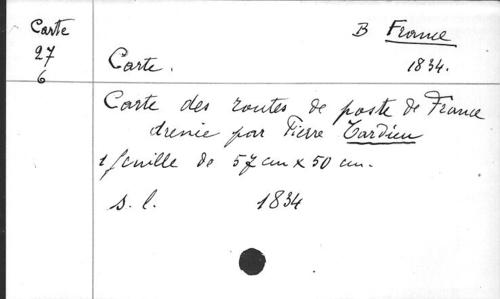 Carte
27
6
B France
Carte.
1834.
Carte des routes de poste de France
dressée par Pierre Tardieu
1 feuille de 57 cm x 50 cm.
s. l. 1834